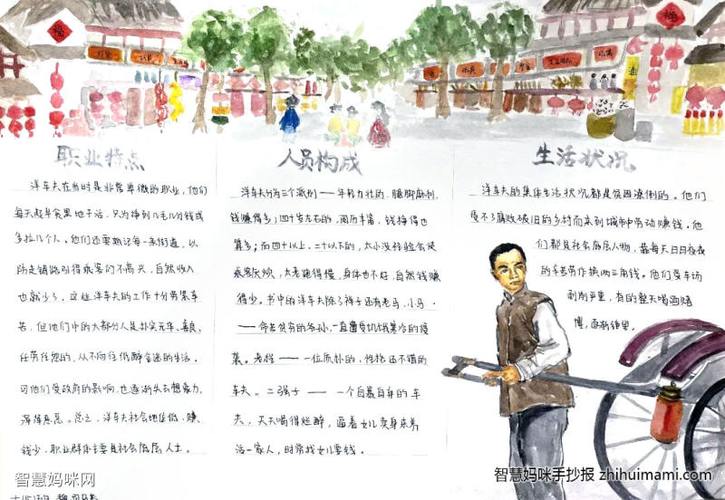 福
福
职业特点
洋车夫在当时是非常卑微的职业，他们
每天起早贪黑地干活，只为挣到几毛几分钱或
多拉几个人。他们还要熟记每一条街道，以
防走错路引得乘客们不高兴，自然收入
也就少了。这些洋车夫的工作十分劳累辛
苦，但他们中的大部分人是朴实无华、善良、
任劳任怨的，从不向往低醉金迷的生活。
可他们受政府的影响，也逐渐失去想象力，
深得焦急。总之，洋车夫社会地位低、赚
钱少，职业群体主要是社会底层人士。
人员构成
洋车夫分为三个派别——年轻力壮的，腿脚麻利，
钱赚得多；四十岁左右的，阅历丰富，钱挣得也
算多；而四十以上、二十以下的，太小没经验会受
乘客厌烦，太老跑得慢，身体也不好，自然钱赚
得少。书中的洋车夫除了祥子还有老马、小马
——命苦贫穷的爷孙，一直遭受饥饿寒冷的侵
袭。老程——一位质朴的、性格还不错的
车夫。二强子——一个自暴自弃的车
夫，天天喝得烂醉，逼着女儿卖身来养
活一家人，时常找女儿要钱。
生活状况
洋车夫的集体生活状况都是贫困潦倒的。他们
受不了腐败破旧的乡村而来到城市中劳动赚钱。他
们都是社会底层人物，靠每天日日夜夜
的辛苦劳作换两三角钱。他们受车场
剥削严重，有的整天喝酒赌
博，逐渐堕落。
智慧妈咪网
智慧妈咪手抄报 zhihuimami.com